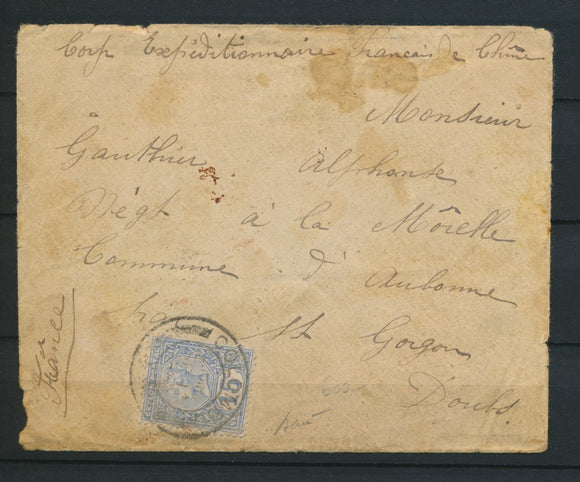 Corp Expéditionnaire Francais de Chine
Monsieur
Gauthier Alphonse
Négt à la Môrelle
Commune d' Aubonne
par St Gorgon
Doubs
France
COLOMBO
600